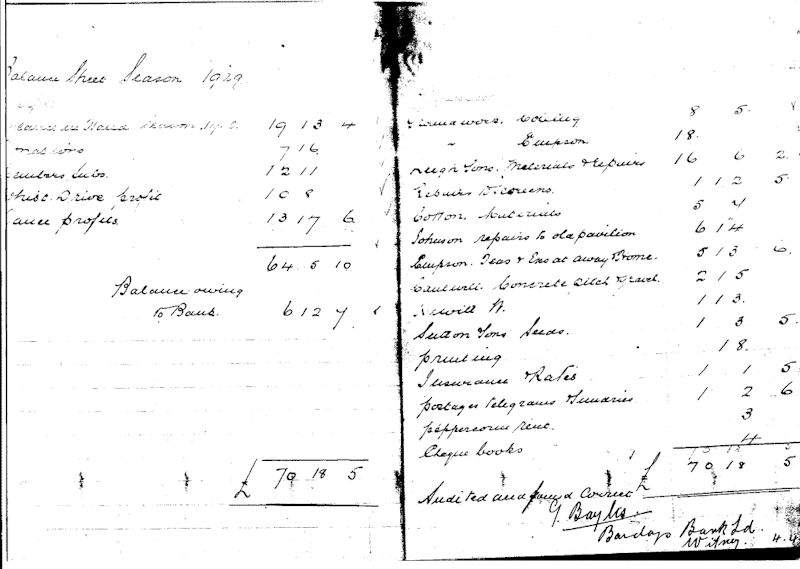 Balance Sheet Season 1929
in Hand Season 19 13 4
7 16
Members Subs. 12 11
Whist Drive profit 10 8
Dance profits. 13 17 6
64 5 10
Balance owing
to Bank. 6 12 7
£ 70 18 5
8 5 8
" Empson. 18.
Leigh Sons. Materials & Repairs 16 6 2
Repairs to screens. 1 12 5
Cotton. Materials 5 4
Johnson repairs to old pavilion 6 14
Empson. Teas & Exs at away 5 13 6
Concrete Pitch & Gravel. 2 15
W. 1 13.
Sutton Sons Seeds. 1 3 5
printing 18.
Insurance & Rates 1 1 5
postages telegrams & Sundries 1 2 6
peppercorn rent. 3
Cheque books 4
£ 70 18 5
Audited and found correct
G. Baylis.
Barclays Bank Ld.
Witney. 4.4